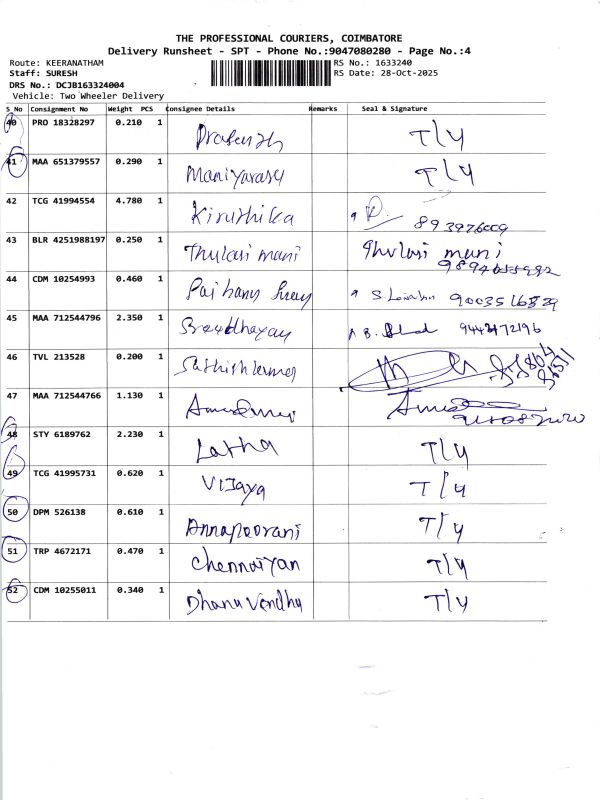 THE PROFESSIONAL COURIERS, COIMBATORE
Delivery Runsheet - SPT - Phone No.:9047080280 - Page No.:4
Route: KEERANATHAM RS No.: 1633240
Staff: SURESH RS Date: 28-Oct-2025
DRS No.: DCJB163324004
Vehicle: Two Wheeler Delivery
S_No Consignment No Weight PCS Consignee Details Remarks Seal & Signature
40 PRO 18328297 0.210 1 T/4
41 MAA 651379557 0.290 1 Maniyarasu T/4
42 TCG 41994554 4.780 1 Kiruthika
43 BLR 4251988197 0.250 1 Thulasi mani Thulasi mani
44 CDM 10254993 0.460 1
45 MAA 712544796 2.350 1
46 TVL 213528 0.200 1 Sathishkumar
47 MAA 712544766 1.130 1
48 STY 6189762 2.230 1 Latha T/4
49 TCG 41995731 0.620 1 Vijaya T/4
50 DPM 526138 0.610 1 Annapoorani T/4
51 TRP 4672171 0.470 1 Chenniyan T/4
52 CDM 10255011 0.340 1 T/4